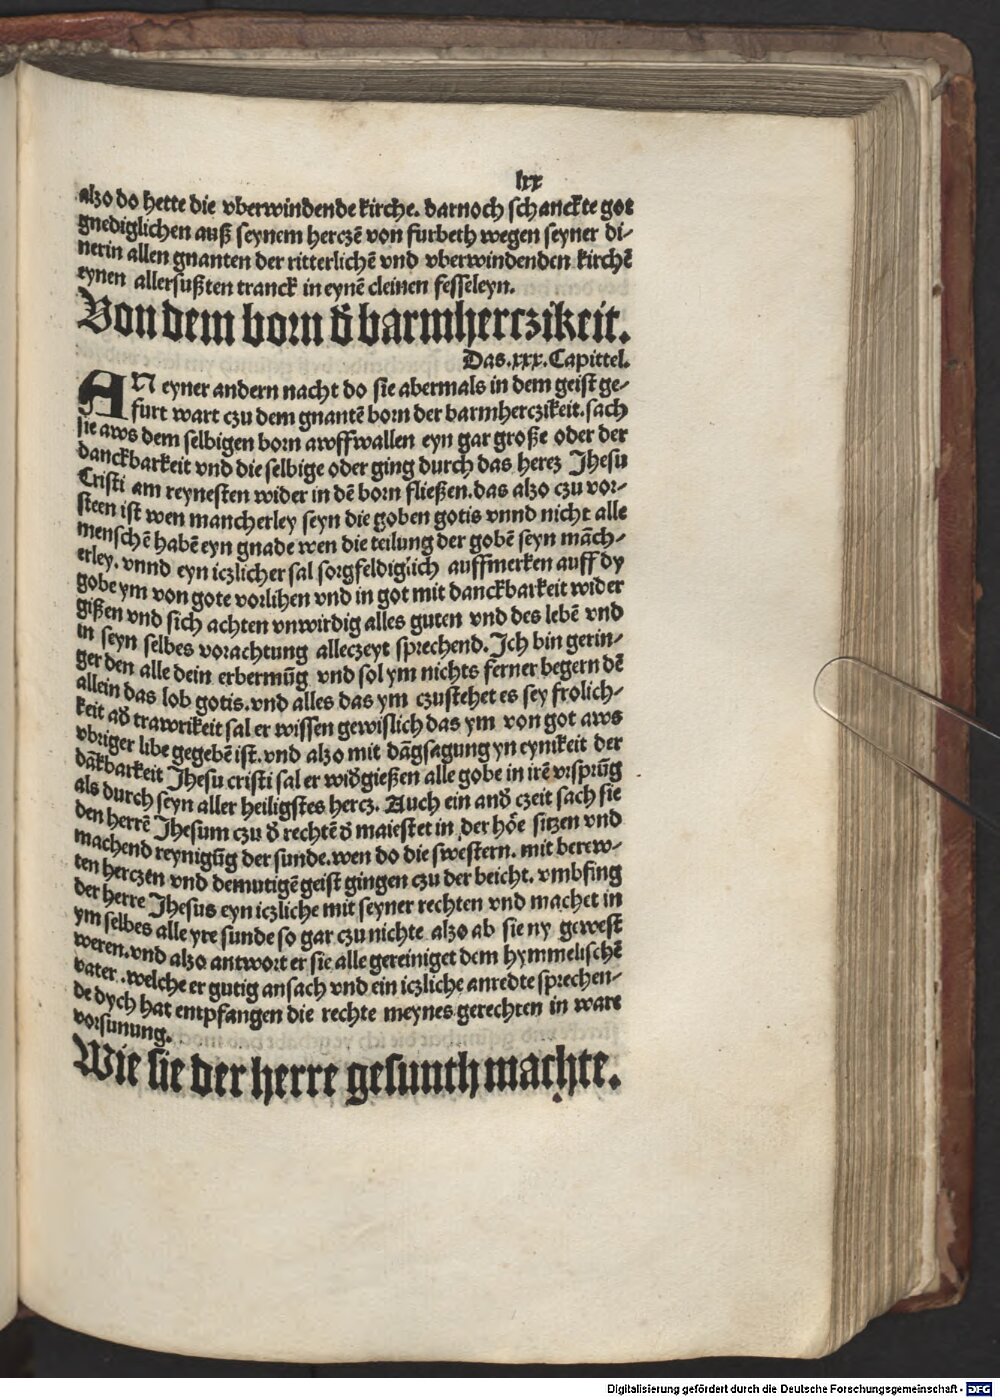 lxx
alzo do hette die vberwindende kirche. darnoch schanckte got
gnediglichen auß seynem herczē von furbeth wegen seyner di-
nerin allen gnanten der ritterlichē vnd vberwindenden kirchē
eynen allersußten tranck in eynē cleinen fesseleyn.
Von dem born d̄ barmherczikeit.
Das.xxx.Capittel.
AN eyner andern nacht do sie abermals in dem geist ge-
furt wart czu dem gnantē born der barmherczikeit.sach
sie aws dem selbigen born awffwallen eyn gar große oder der
danckbarkeit vnd die selbige oder ging durch das hercz Jhesu
Cristi am reynesten wider in dē born fließen.das alzo czu vor-
steen ist wen mancherley seyn die goben gotis vnnd nicht alle
menschē habē eyn gnade wen die teilung der gobē seyn māch-
erley. vnnd eyn iczlicher sal sorgfeldiglich auffmerken auff dy
gobe ym von gote vorlihen vnd in got mit danckbarkeit wider
gißen vnd sich achten vnwirdig alles guten vnd des lebē vnd
in seyn selbes vorachtung alleczeyt sprechend. Ich bin gerin-
ger den alle dein erbermūg vnd sol ym nichts ferner begern dē
allein das lob gotis.vnd alles das ym czustehet es sey frolich-
keit ad̄ trawrikeit sal er wissen gewislich das ym von got aws
vbriger libe gegebē ist.vnd alzo mit dāgsagung yn eynikeit der
dākbarkeit Jhesu cristi sal er wid̄gießen alle gobe in irē vrsprūg
als durch seyn aller heiligstes hercz. Auch ein and̄ czeit sach sie
den herrē Jhesum czu d̄ rechtē d̄ maiestet in der hōe sitzen vnd
machend reynigūg der sunde.wen do die swestern. mit berew-
ten herczen vnd demutigē geist gingen czu der beicht. vmbfing
der herre Jhesus eyn iczliche mit seyner rechten vnd machet in
ym selbes alle yre sunde so gar czu nichte alzo ab sie ny gewest
weren.vnd alzo antwort er sie alle gereiniget dem hymmelischē
vater .welche er gutig ansach vnd ein iczliche anredte sprechen-
de dych hat empfangen die rechte meynes gerechten in ware
vorsunung.
Wie sie der herre gesunth machte.
Digitalisierung gefördert durch die Deutsche Forschungsgemeinschaft - DFG